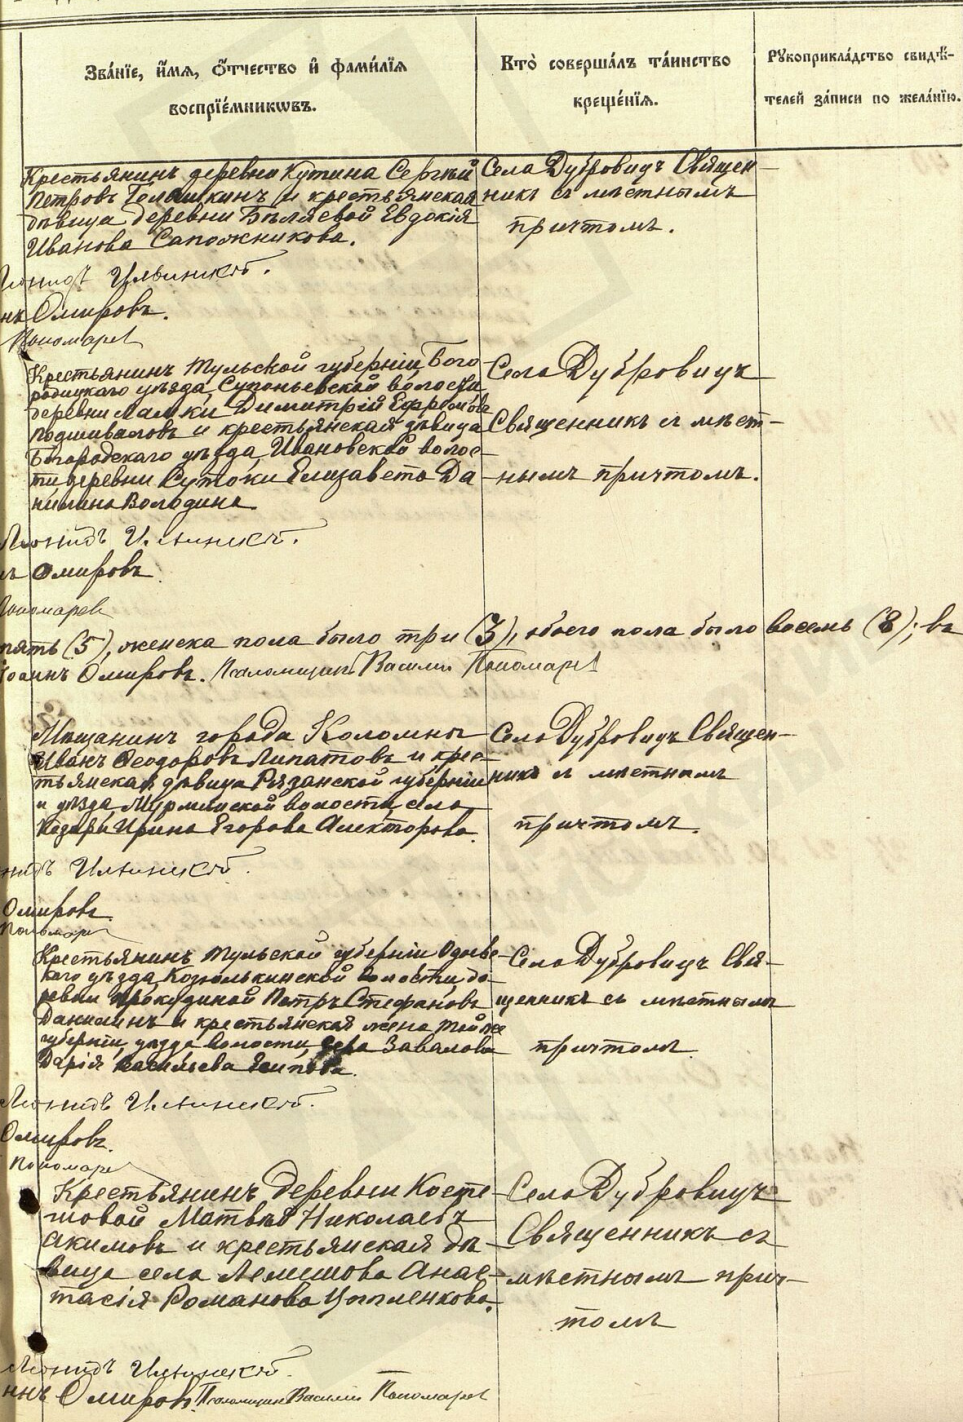 Зва́нїе, и҆́мѧ, ѻ҆́тчество и҆ фами́лїѧ
воспрїе́мникѡвъ.
Кто̀ соверша́лъ та́инство
креще́нїѧ.
Рꙋкоприкла́дство свидѣ́-
телей за́писи по жела́нїю.
Крестьянинъ деревни Кутина Сергѣй
Петровъ и крестьянская
дѣвица деревни Бѣляевой Евдокія
Иванова Сапожникова.
Села Дубровицъ Священ-
никъ съ мѣстнымъ
причтомъ.
Ильинскій.
Омировъ.
Пономаревъ
Крестьянинъ Тульской губерніи Бого
родицкаго уѣзда, Супоньевской волости
деревни Димитрій Ефремовъ
Подшиваловъ и крестьянская дѣвица
Богородскаго уѣзда, Ивановской волос-
ти деревни Сутоки Елизавета Да
нилина Володина
Села Дубровицъ
Священникъ съ мѣст-
нымъ причтомъ.
Леонидъ Ильинскій.
Омировъ.
Пономаревъ
пять (5), женска пола было три (3), обоего пола было восемь (8); въ
Іоаннъ Омировъ. Псаломщикъ Василій Пономаревъ
Мѣщанинъ города Коломны
Иванъ Ѳеодоровъ Липатовъ и крес-
тьянская дѣвица Рязанской губерніи
и уѣзда, Мурминской волости, села
Казари Ирина Егорова Алекторова.
Села Дубровицъ Священ-
никъ съ мѣстнымъ
причтомъ.
Ильинскій.
Омировъ.
Пономаревъ
Крестьянинъ Тульской губерніи Одоев-
каго уѣзда, волости, де-
ревни Прокудиной Петръ Стефановъ
Данилинъ и крестьянская жена той же
губерніи, уѣзда волости, села Завалова
Дарія Васильева Есипова.
Села Дубровицъ Свя-
щенникъ съ мѣстнымъ
причтомъ
Леонидъ Ильинскій.
Омировъ.
Пономаревъ
Крестьянинъ деревни Косте-
шовой Матвѣй Николаевъ
Акимовъ и крестьянская дѣ-
вица села Лемешова Анас-
тасія Романова Цыпленкова.
Села Дубровицъ
Священникъ съ
мѣстнымъ прич-
томъ
Леонидъ Ильинскій.
Омировъ. Псаломщикъ Василій Пономаревъ